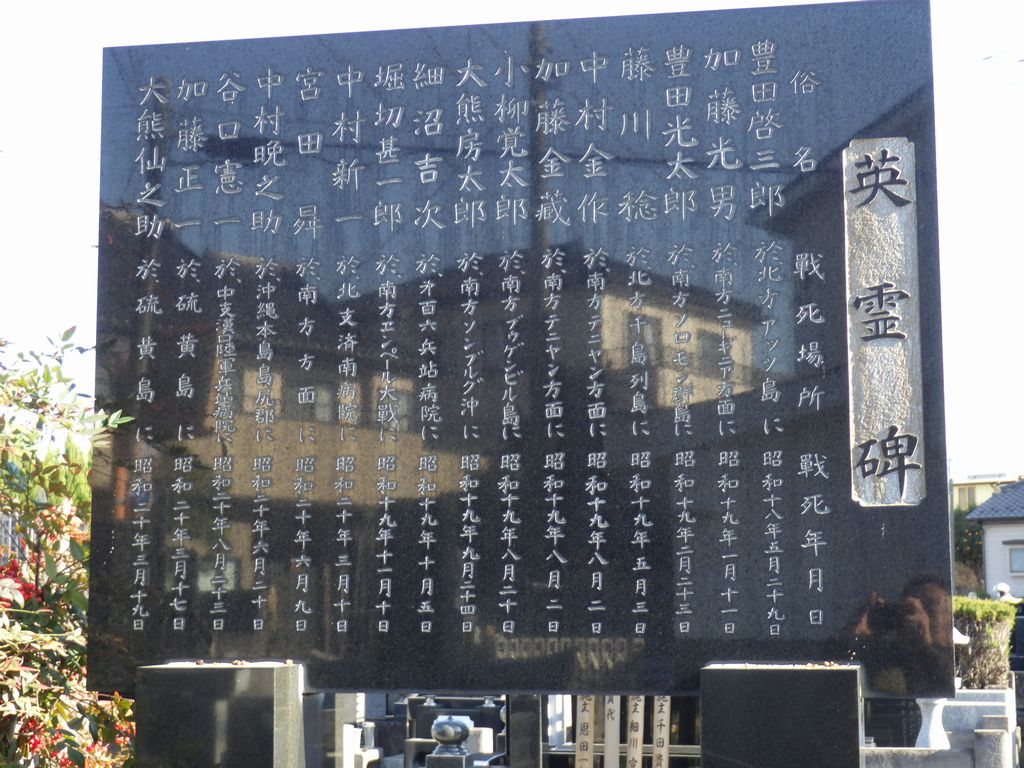 英霊碑
俗名 戰死場所 戰死年月日
豊田啓三郎 於、北方アッツ島に 昭和十八年五月二十九日
加藤光男 於、南方ニューギニア方面に 昭和十九年一月十一日
豊田光太郎 於、南方ソロモン群島に 昭和十九年二月二十三日
藤川稔 於、北方千島列島に 昭和十九年五月三日
中村金作 於、南方テニヤン方面に 昭和十九年八月二日
加藤金蔵 於、南方テニヤン方面に 昭和十九年八月二日
小柳覚太郎 於、南方ブゥゲンビル島に 昭和十九年八月二十日
大熊房太郎 於、南方ソンブルグ沖に 昭和十九年九月二十四日
細沼吉次 於、才百六兵站病院に 昭和十九年十月五日
堀切甚一郎 於、南方エンペール大戰に 昭和十九年十一月十日
中村新一 於、北支済南病院に 昭和二十年三月十日
宮田曻 於、南方方面に 昭和二十年六月九日
中村晩之助 於、沖縄本島島尻郡に 昭和二十年六月二十日
谷口憲一 於、中支漢口陸軍兵站病院に 昭和二十年八月二十三日
加藤正一 於、硫黄島に 昭和二十年三月十七日
大熊仙之助 於、硫黄島に 昭和二十年三月十九日